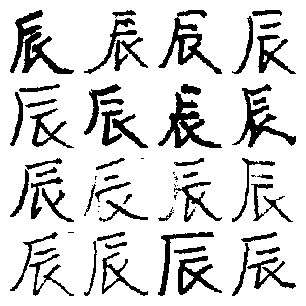 辰辰辰辰
辰辰辰辰
辰辰辰辰
辰辰辰辰